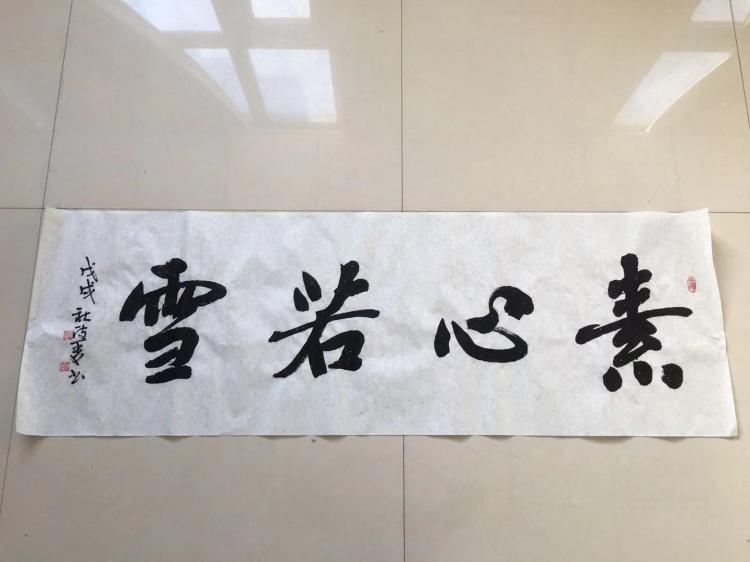 素心若雪
戊戌
书